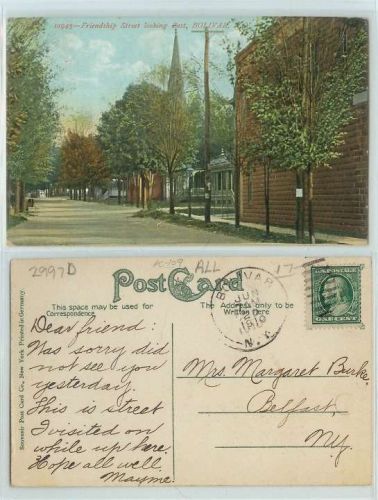 10945—Friendship Street looking East, BOLIVAR
2997D
AC-109
ALL
17-
Post Card
This space may be used for
Correspondence
The Address only to be
Written Here
BOLIVAR
JUN
1910
N. Y.
U.S. POSTAGE
ONE CENT
Souvenir Post Card Co., New York Printed in Germany.
Dear friend:
Was sorry did
not see you
yesterday.
This is street
I visited on
while up here.
Hope all well.
Mayme.
Mrs. Margaret Burke.
Belfast,
N.Y.